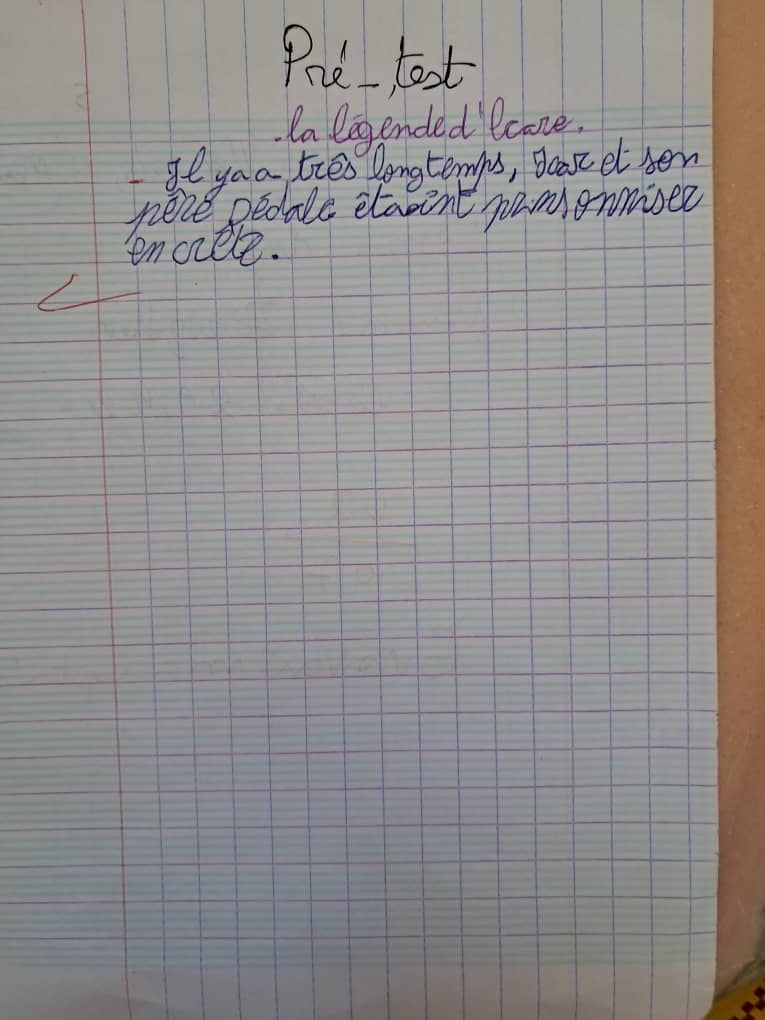 Pré-test
-la légende d'Icare.
- Il y a a très longtemps, Icar et son
péré Dédale étaeint prinsonniser
en crète.